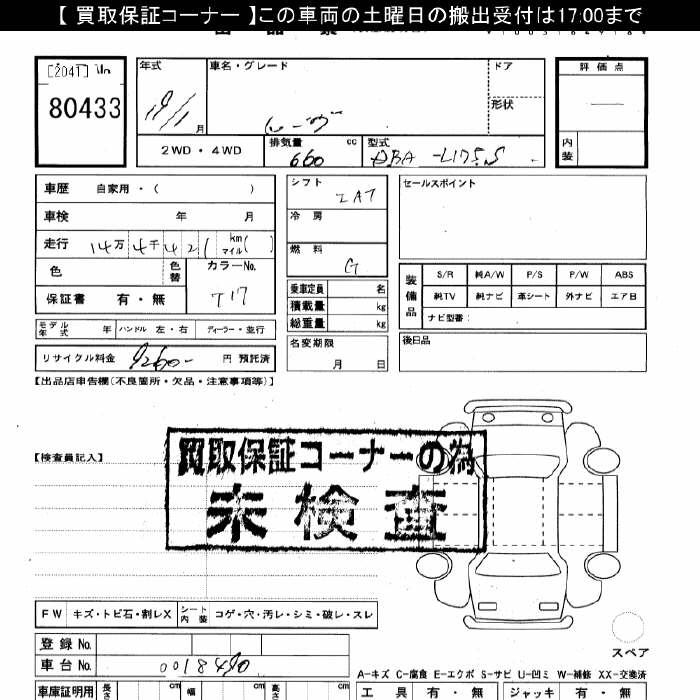 【 買取保証コーナー 】この車両の土曜日の搬出受付は17:00まで
[2041]
80433
年式
車名・グレード
ドア
形状
評価点
月
2WD ・ 4WD
排気量 660 cc
型式 DBA-L175S
内装
車歴 自家用・( )
車検 年 月
走行 14万 4千 4 2 1 km マイル( )
色
色替
カラーNo.
T17
保証書 有・無
モデル年式 年
ハンドル 左・右
ディーラー・並行
リサイクル料金 9260- 円 預託済
シフト IAT
冷房
燃料 G
乗車定員 名
積載量 kg
総重量 kg
名変期限
月 日
セールスポイント
装備品
S/R 純A/W P/S P/W ABS
純TV 純ナビ 革シート 外ナビ エアB
ナビ型番:
後日品
【出品店申告欄(不良箇所・欠品・注意事項等)】
【検査員記入】
買取保証コーナーの為
未検査
FW キズ・トビ石・割レX
シート内装 コゲ・穴・汚レ・シミ・破レ・スレ
登録 No.
車台 No. 0018490
車庫証明用 長さ cm 幅 cm 高さ cm
スペア
A-キズ C-腐食 E-エクボ S-サビ U-凹ミ W-補修 XX-交換済
工具 有・無 ジャッキ 有・無